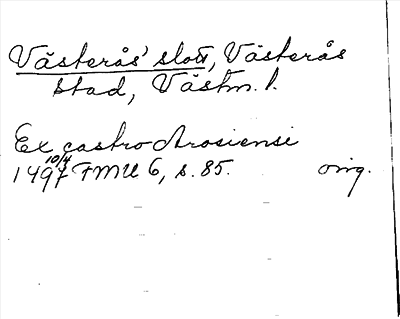 Västerås' slott, Västerås
stad, Västm. l.
Ex castro Arosiensi
10/4
1497 FMU 6, s. 85. orig.